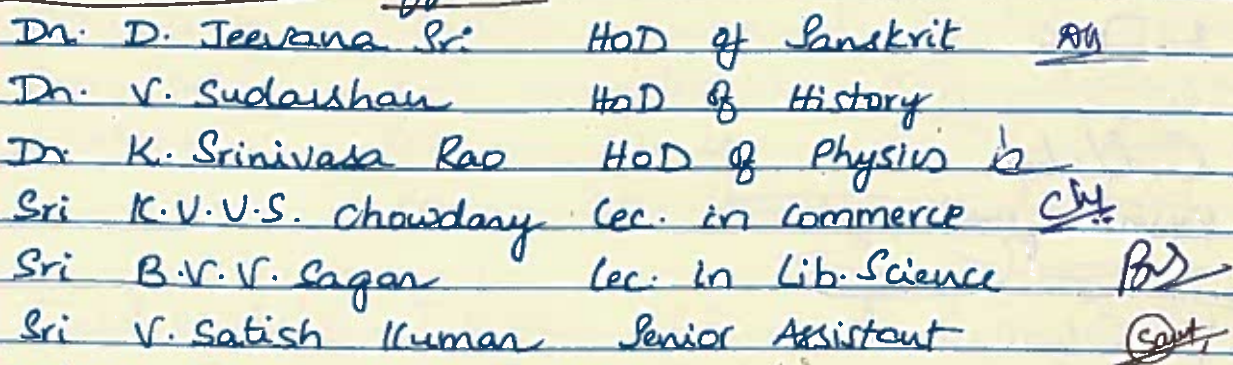 Dr. D. Jeevana Sri HOD of Sanskrit
Dr. V. Sudarshan HOD of History
Dr. K. Srinivasa Rao HOD of Physics
Sri K.V.V.S. Chowdary Lec. in Commerce
Sri B.V.V. Sagar Lec. in Lib. Science
Sri V. Satish Kumar Senior Assistant